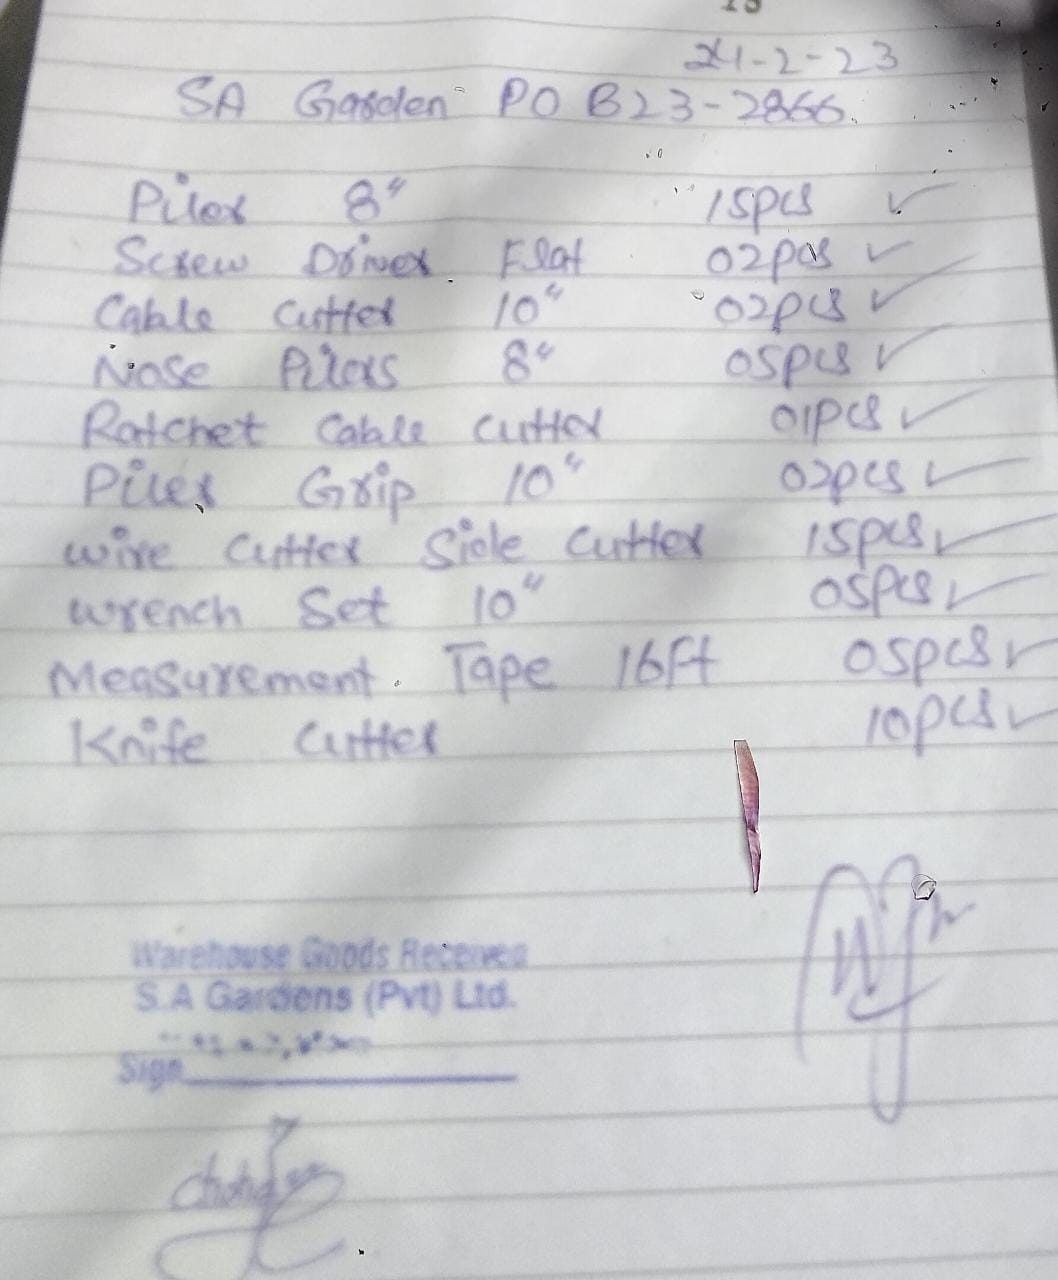 SA Garden PO B23-2866
Piler 8" 15pcs ✓
Screw Driver Flat 02pcs ✓
Cable Cutter 10" 02pcs ✓
Nose Pilers 8" 05pcs ✓
Ratchet Cable Cutter 01pcs ✓
Piler Grip 10" 02pcs ✓
wire Cutter Side Cutter 15pcs ✓
wrench Set 10" 05pcs ✓
Measurement Tape 16Ft 05pcs ✓
Knife Cutter 10pcs ✓
Warehouse Goods Received
S.A Gardens (Pvt) Ltd.
Sign